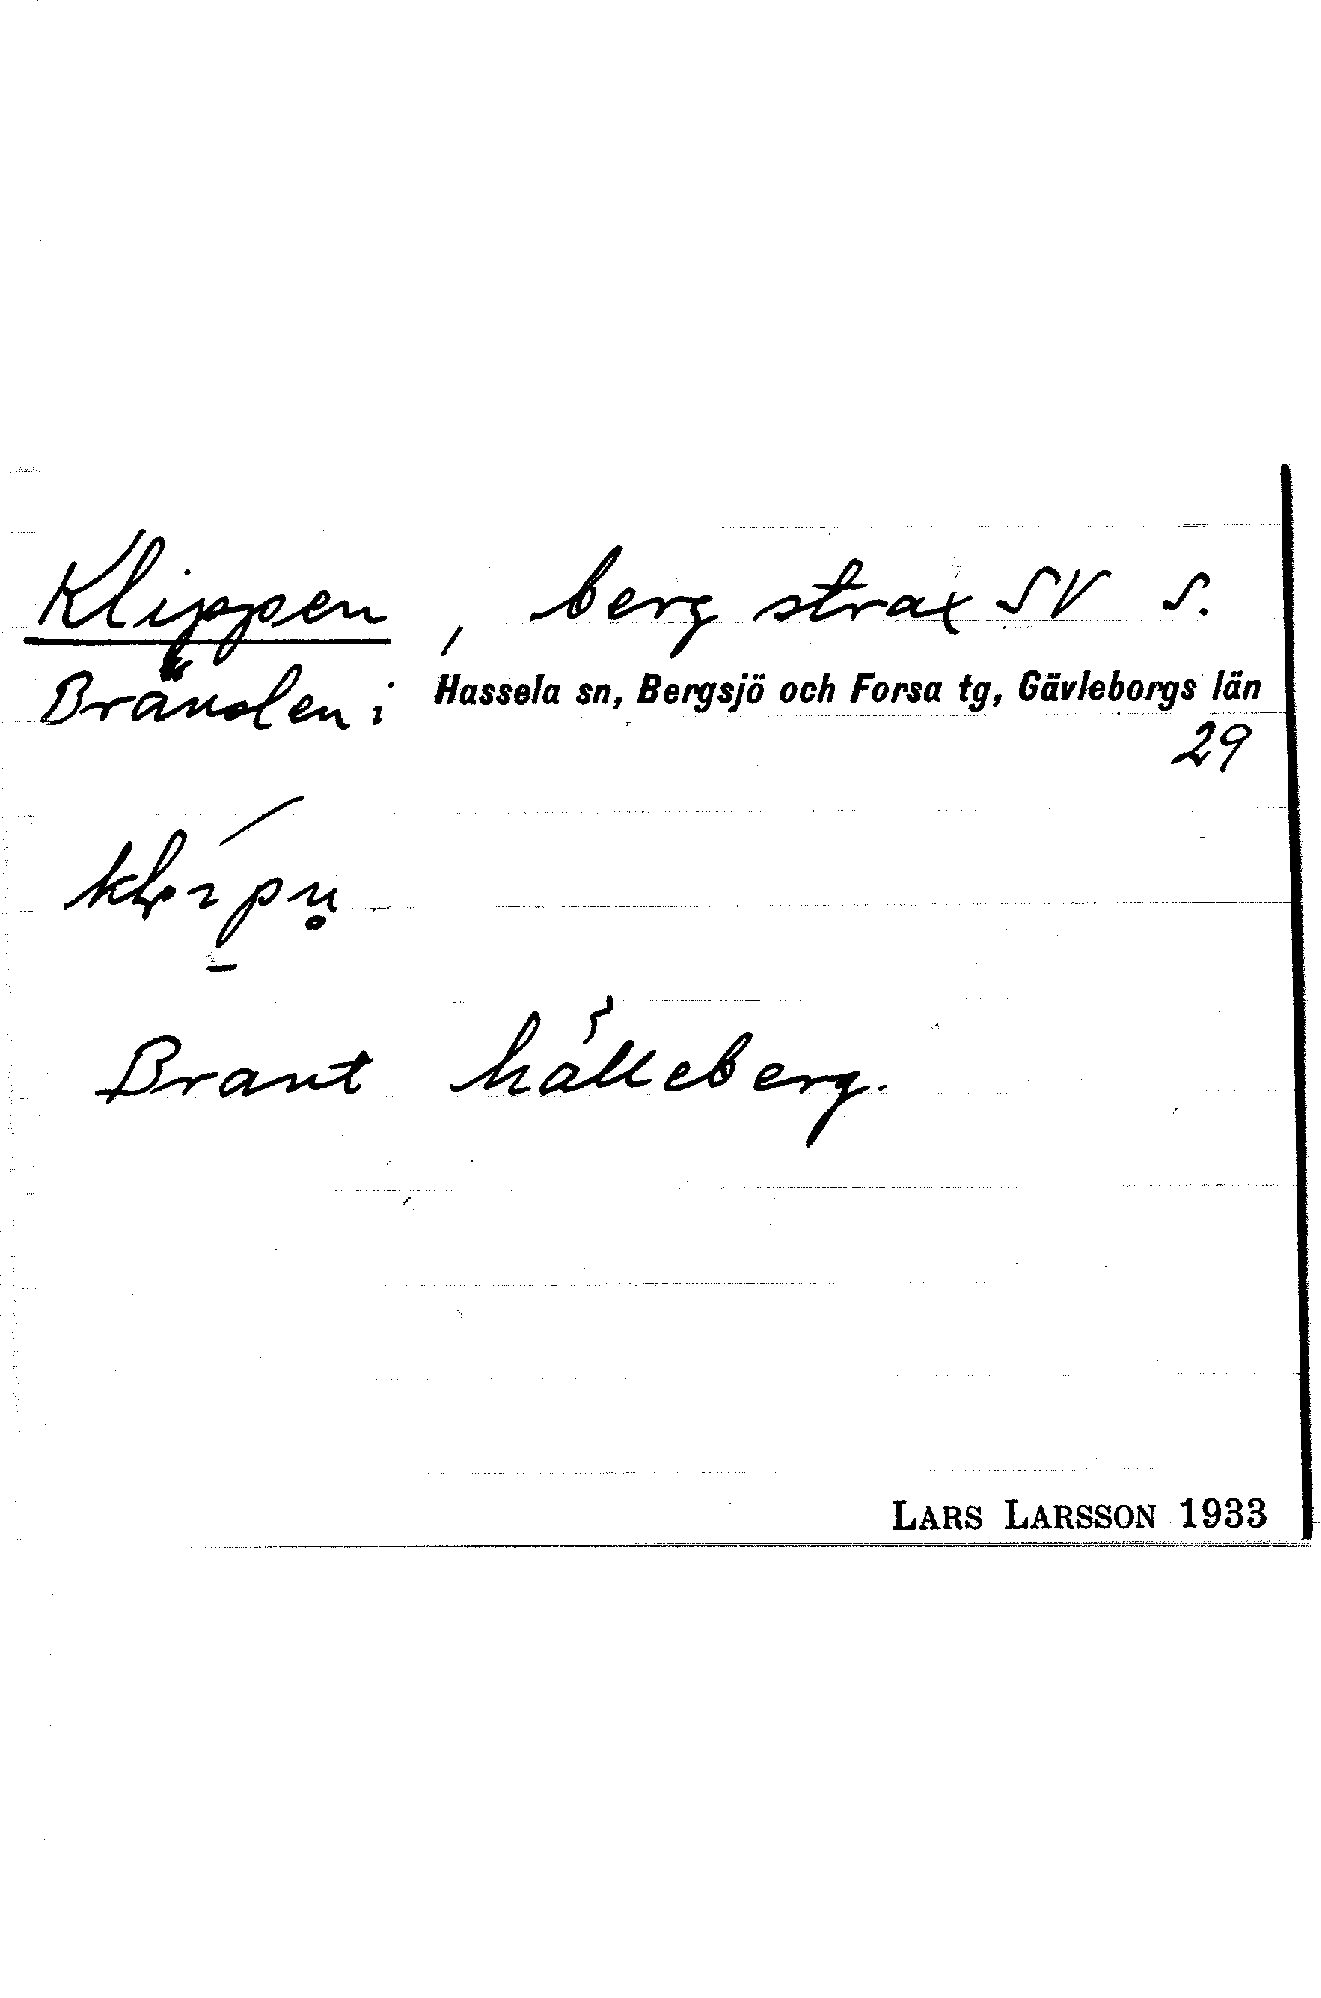 Klippen, berg strax SV S.
Brändeni Hassela sn, Bergsjö och Forsa tg, Gävleborgs län
29
Brant hälleberg.
LARS LARSSON 1933